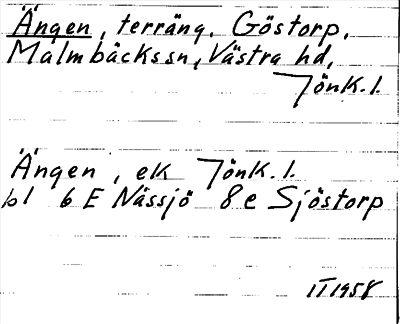 Ängen, terräng. Göstorp,
Malmbäckssn, Västra hd,
Jönk. l.
Ängen, ek Jönk. l.
bl 6 E Nässjö 8 e Sjöstorp
II 1958